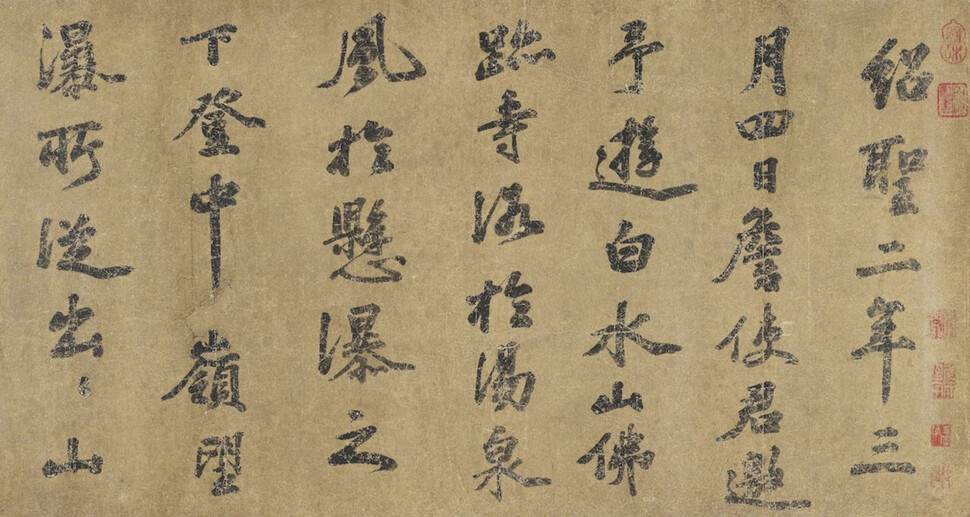 紹聖二年三
月四日詹使君邀
予遊白水山佛
跡寺浴於湯泉
風於懸瀑之
下登中嶺望
瀑所從出出〻山